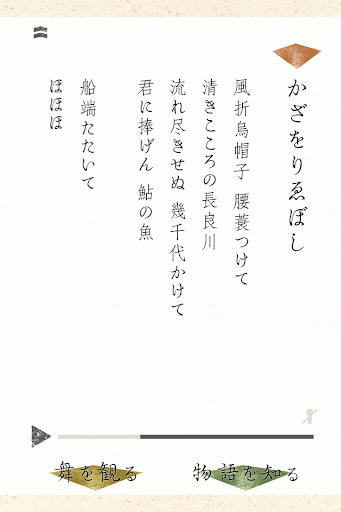 かざをりゑぼし
風折烏帽子 腰蓑つけて
清きこころの長良川
流れ尽きせぬ 幾千代かけて
君に捧げん 鮎の魚
船端たたいて
ほほほ
舞を観る
物語を知る